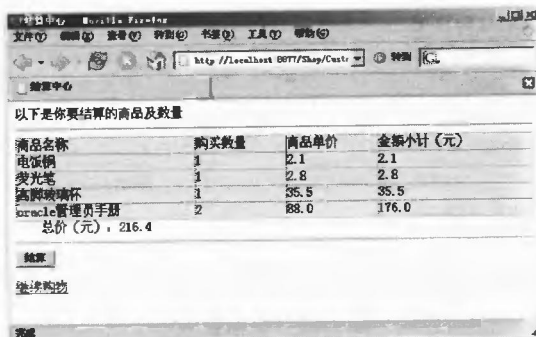 结算中心 - Mozilla Firefox
文件(F) 编辑(E) 查看(V) 转到(G) 书签(B) 工具(T) 帮助(H)
http://localhost:8877/Shop/Custo 转到
结算中心
以下是你要结算的商品及数量
商品名称 购买数量 商品单价 金额小计（元）
电饭锅 1 2.1 2.1
荧光笔 1 2.8 2.8
高脚玻璃杯 1 35.5 35.5
oracle管理员手册 2 88.0 176.0
总价（元）：216.4
结算
继续购物
完成